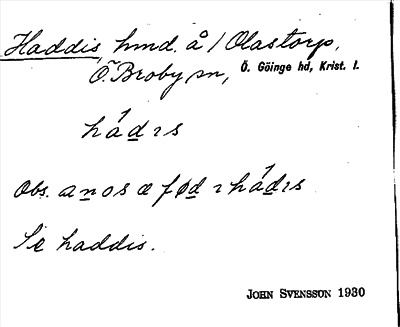 Haddis, hmd. å 1 Olastorp,
Ö. Broby sn, Ö. Göinge hd, Krist. l.
hádıs
Obs. anos æ fød ı hádıs
Se haddis.
JOHN SVENSSON 1930